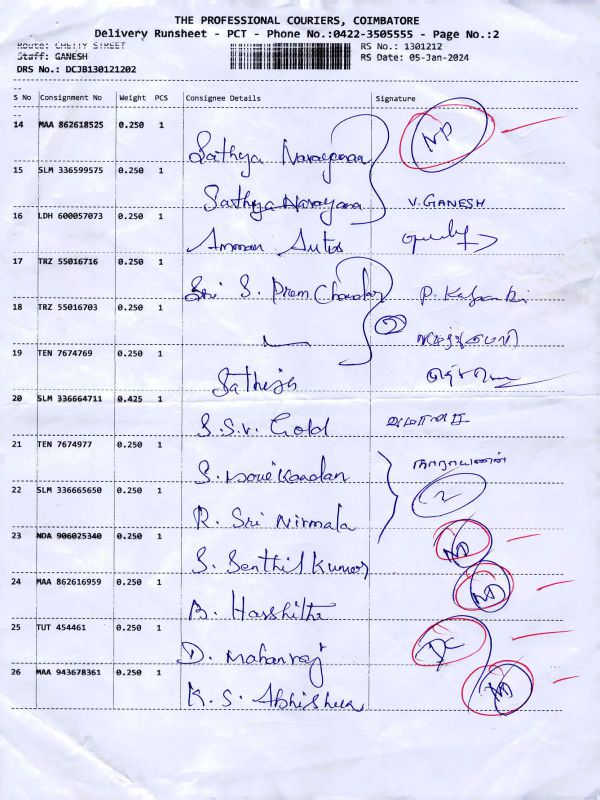 THE PROFESSIONAL COURIERS, COIMBATORE
Delivery Runsheet - PCT - Phone No.:0422-3505555 - Page No.:2
Route: CHETTY STREET
RS No.: 1301212
Staff: GANESH
RS Date: 05-Jan-2024
DRS No.: DCJB130121202
S No Consignment No Weight PCS Consignee Details Signature
14 MAA 862618525 0.250 1 Sathya Narayanan ND
15 SLM 336599575 0.250 1 Sathya Narayana V. GANESH
16 LDH 600057073 0.250 1 Amman Autos
17 TRZ 55016716 0.250 1 Sri S. Prem Chandar
18 TRZ 55016703 0.250 1 2
19 TEN 7674769 0.250 1
20 SLM 336664711 0.425 1 S.S.V. Gold
21 TEN 7674977 0.250 1 S. நாராயணன்
22 SLM 336665650 0.250 1 R. Sri Nirmala 2
23 NDA 906025340 0.250 1 S. Senthil Kumar ND
24 MAA 862616959 0.250 1 B. Harshitha ND
25 TUT 454461 0.250 1 D. Mahanraj DC
26 MAA 943678361 0.250 1 K. S. Abhishek ND